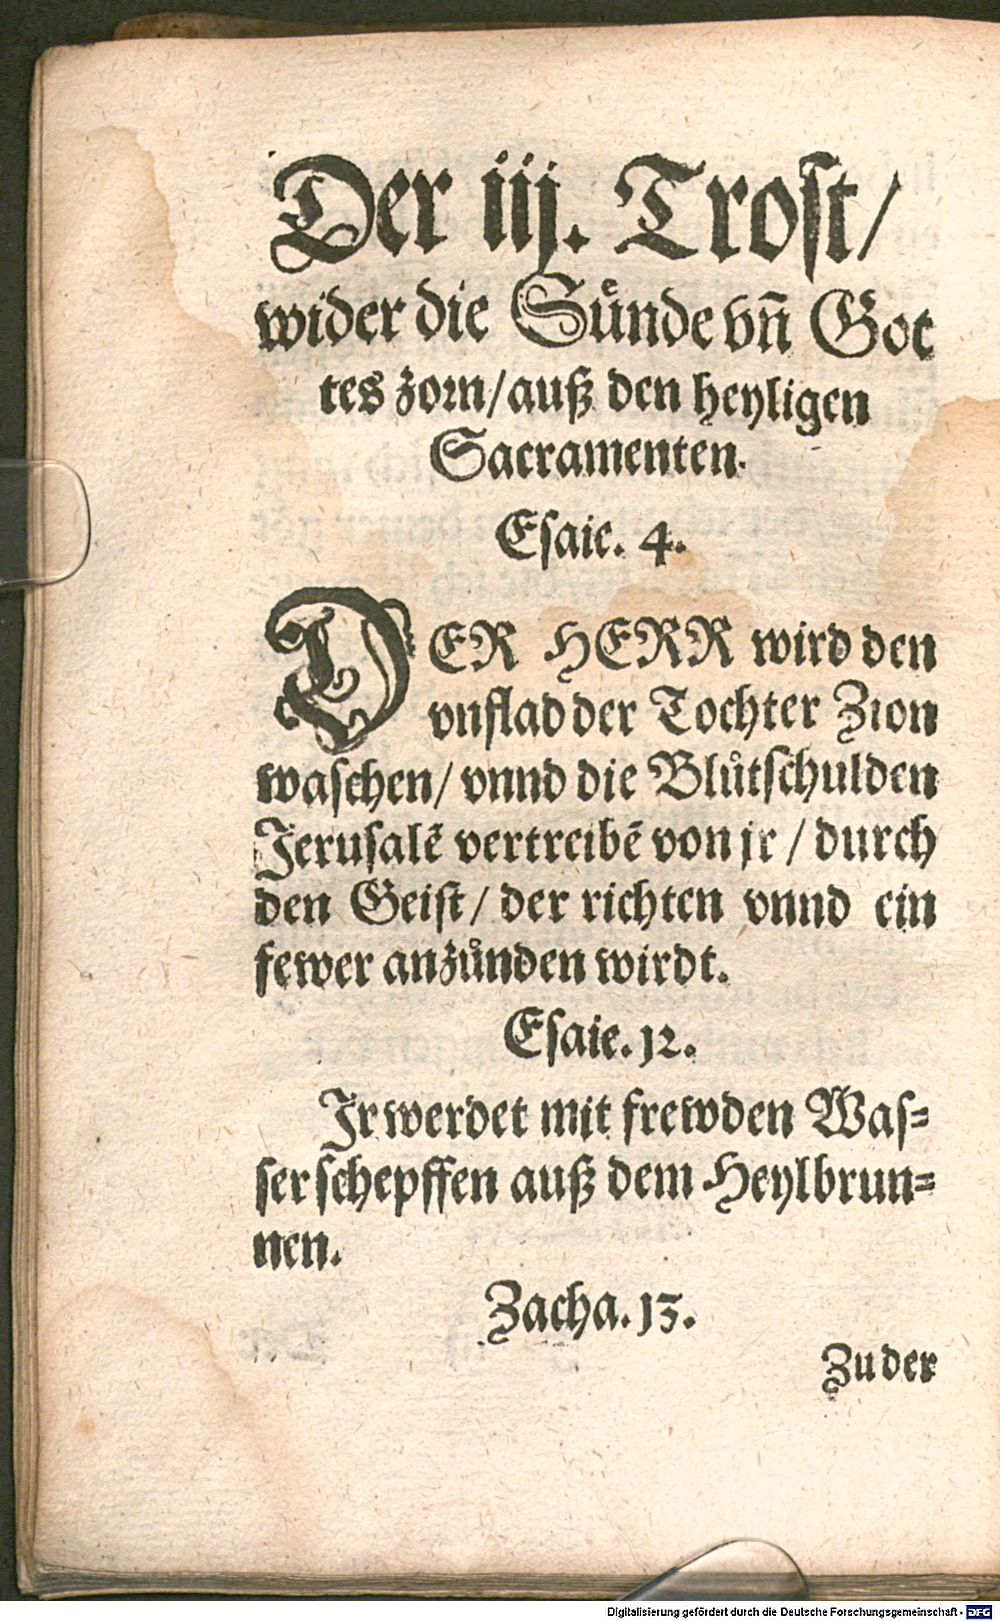 Der iij. Trost/
wider die Sünde vñ Got
tes zorn/auß den heyligen
Sacramenten.
Esaie. 4.
DER HERR wird den
vnflad der Tochter Zion
waschen/ vnnd die Blůtschulden
Jerusalẽ vertreibẽ von jr / durch
den Geist/ der richten vnnd ein
fewer anzünden wirdt.
Esaie. 12.
Jr werdet mit frewden Was-
ser schepffen auß dem Heylbrun-
nen.
Zacha. 13.
Zu der
Digitalisierung gefördert durch die Deutsche Forschungsgemeinschaft - DFG